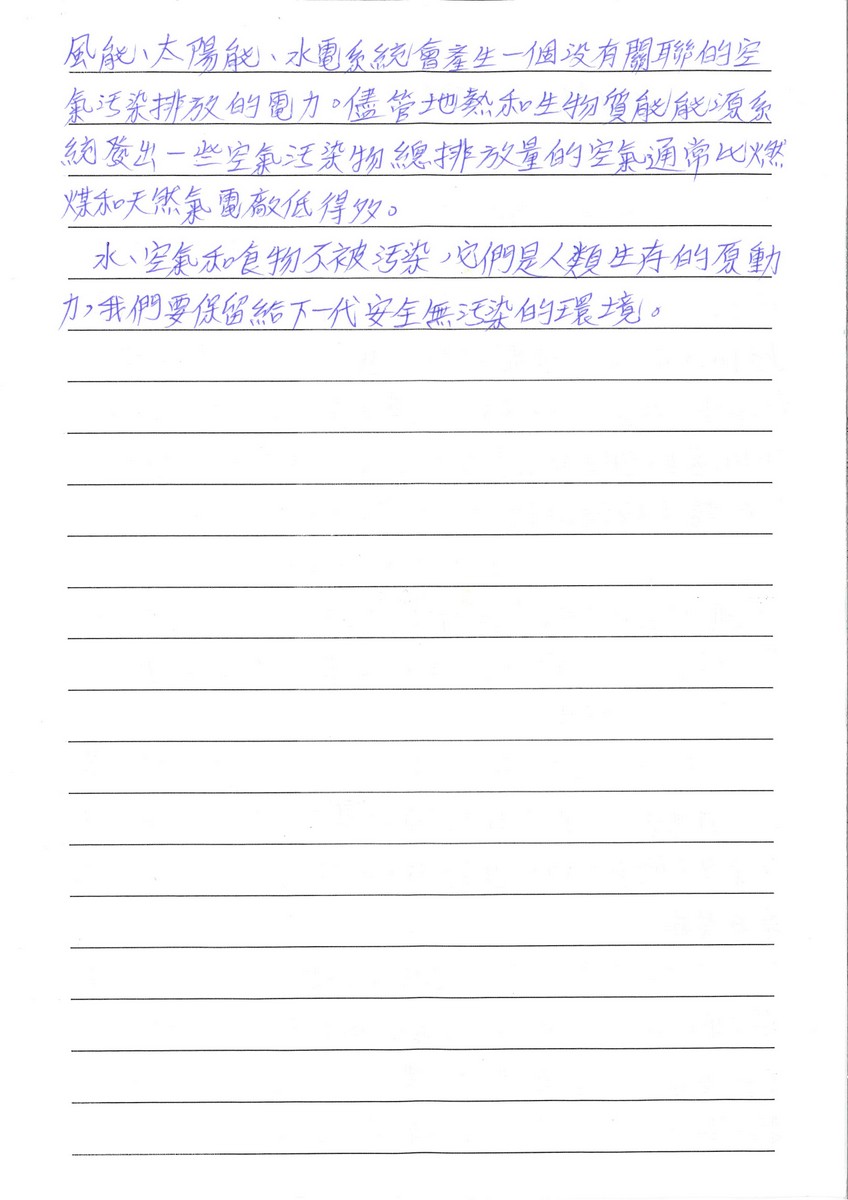 風能、太陽能、水電系統會產生一個沒有關聯的空
氣污染排放的電力。儘管地熱和生物質能能源系
統發出一些空氣污染物總排放量的空氣通常比燃
煤和天然氣電廠低得多。
水、空氣和食物不被污染,它們是人類生存的原動
力,我們要保留給下一代安全無污染的環境。